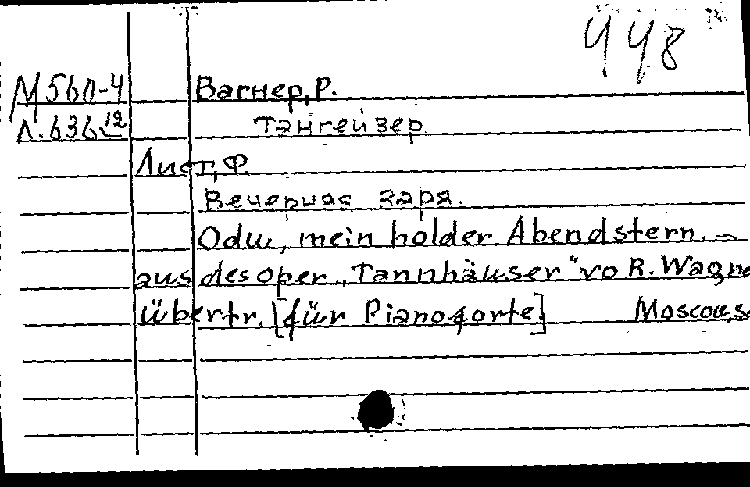 448
М560-4 Вагнер, Р.
Л.636 12 Тангейзер.
Лист, Ф.
Вечерняя заря.
O du, mein holder Abendstern. -
aus des oper „Tannhäuser" vo R. Wagne
übertr. [für Pianoforte] Moscou, s